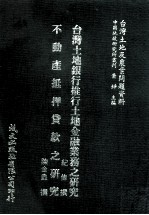 台灣土地及農業問題資料
中國地政研究所叢刊 蕭錚 主編
台灣土地銀行推行土地金融業務之研究
紀雄 撰
不動產抵押貸款之研究
陳全壽 撰
成文出版社有限公司印行